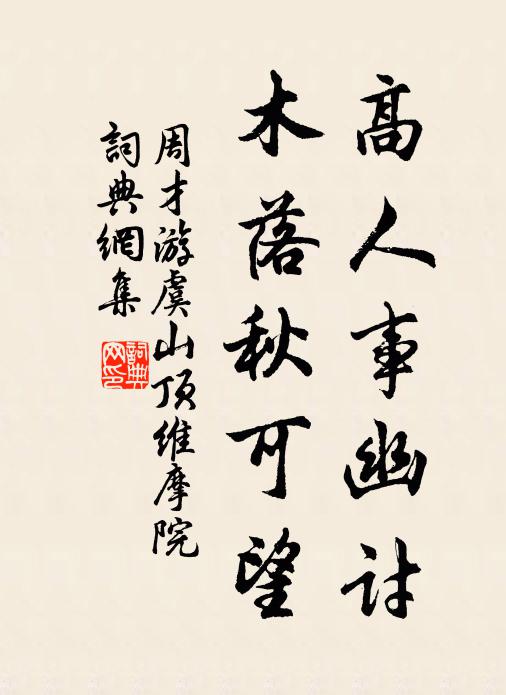 高人事幽討
木落秋可望
周才游虞山頂維摩院
詞典網集
詞典
網印